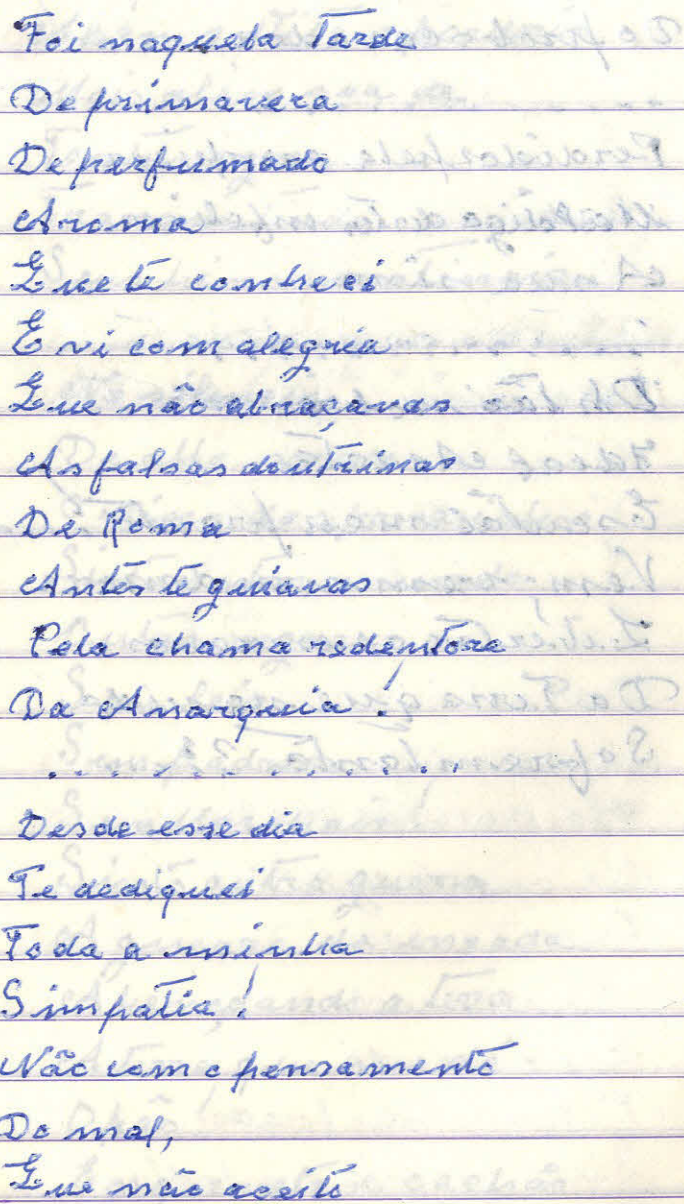 Foi naquela Tarde
De primavera
De perfumado
Aroma
Que te conheci
E vi com alegria
Que não abraçavas
As falsas doutrinas
De Roma
Antes te guiavas
Pela chama redentora
Da Anarquia!
. . . . . . . . . . . . . .
Desde esse dia
Te dediquei
Toda a minha
Simpatia!
Não com o pensamento
Do mal,
Que não aceito